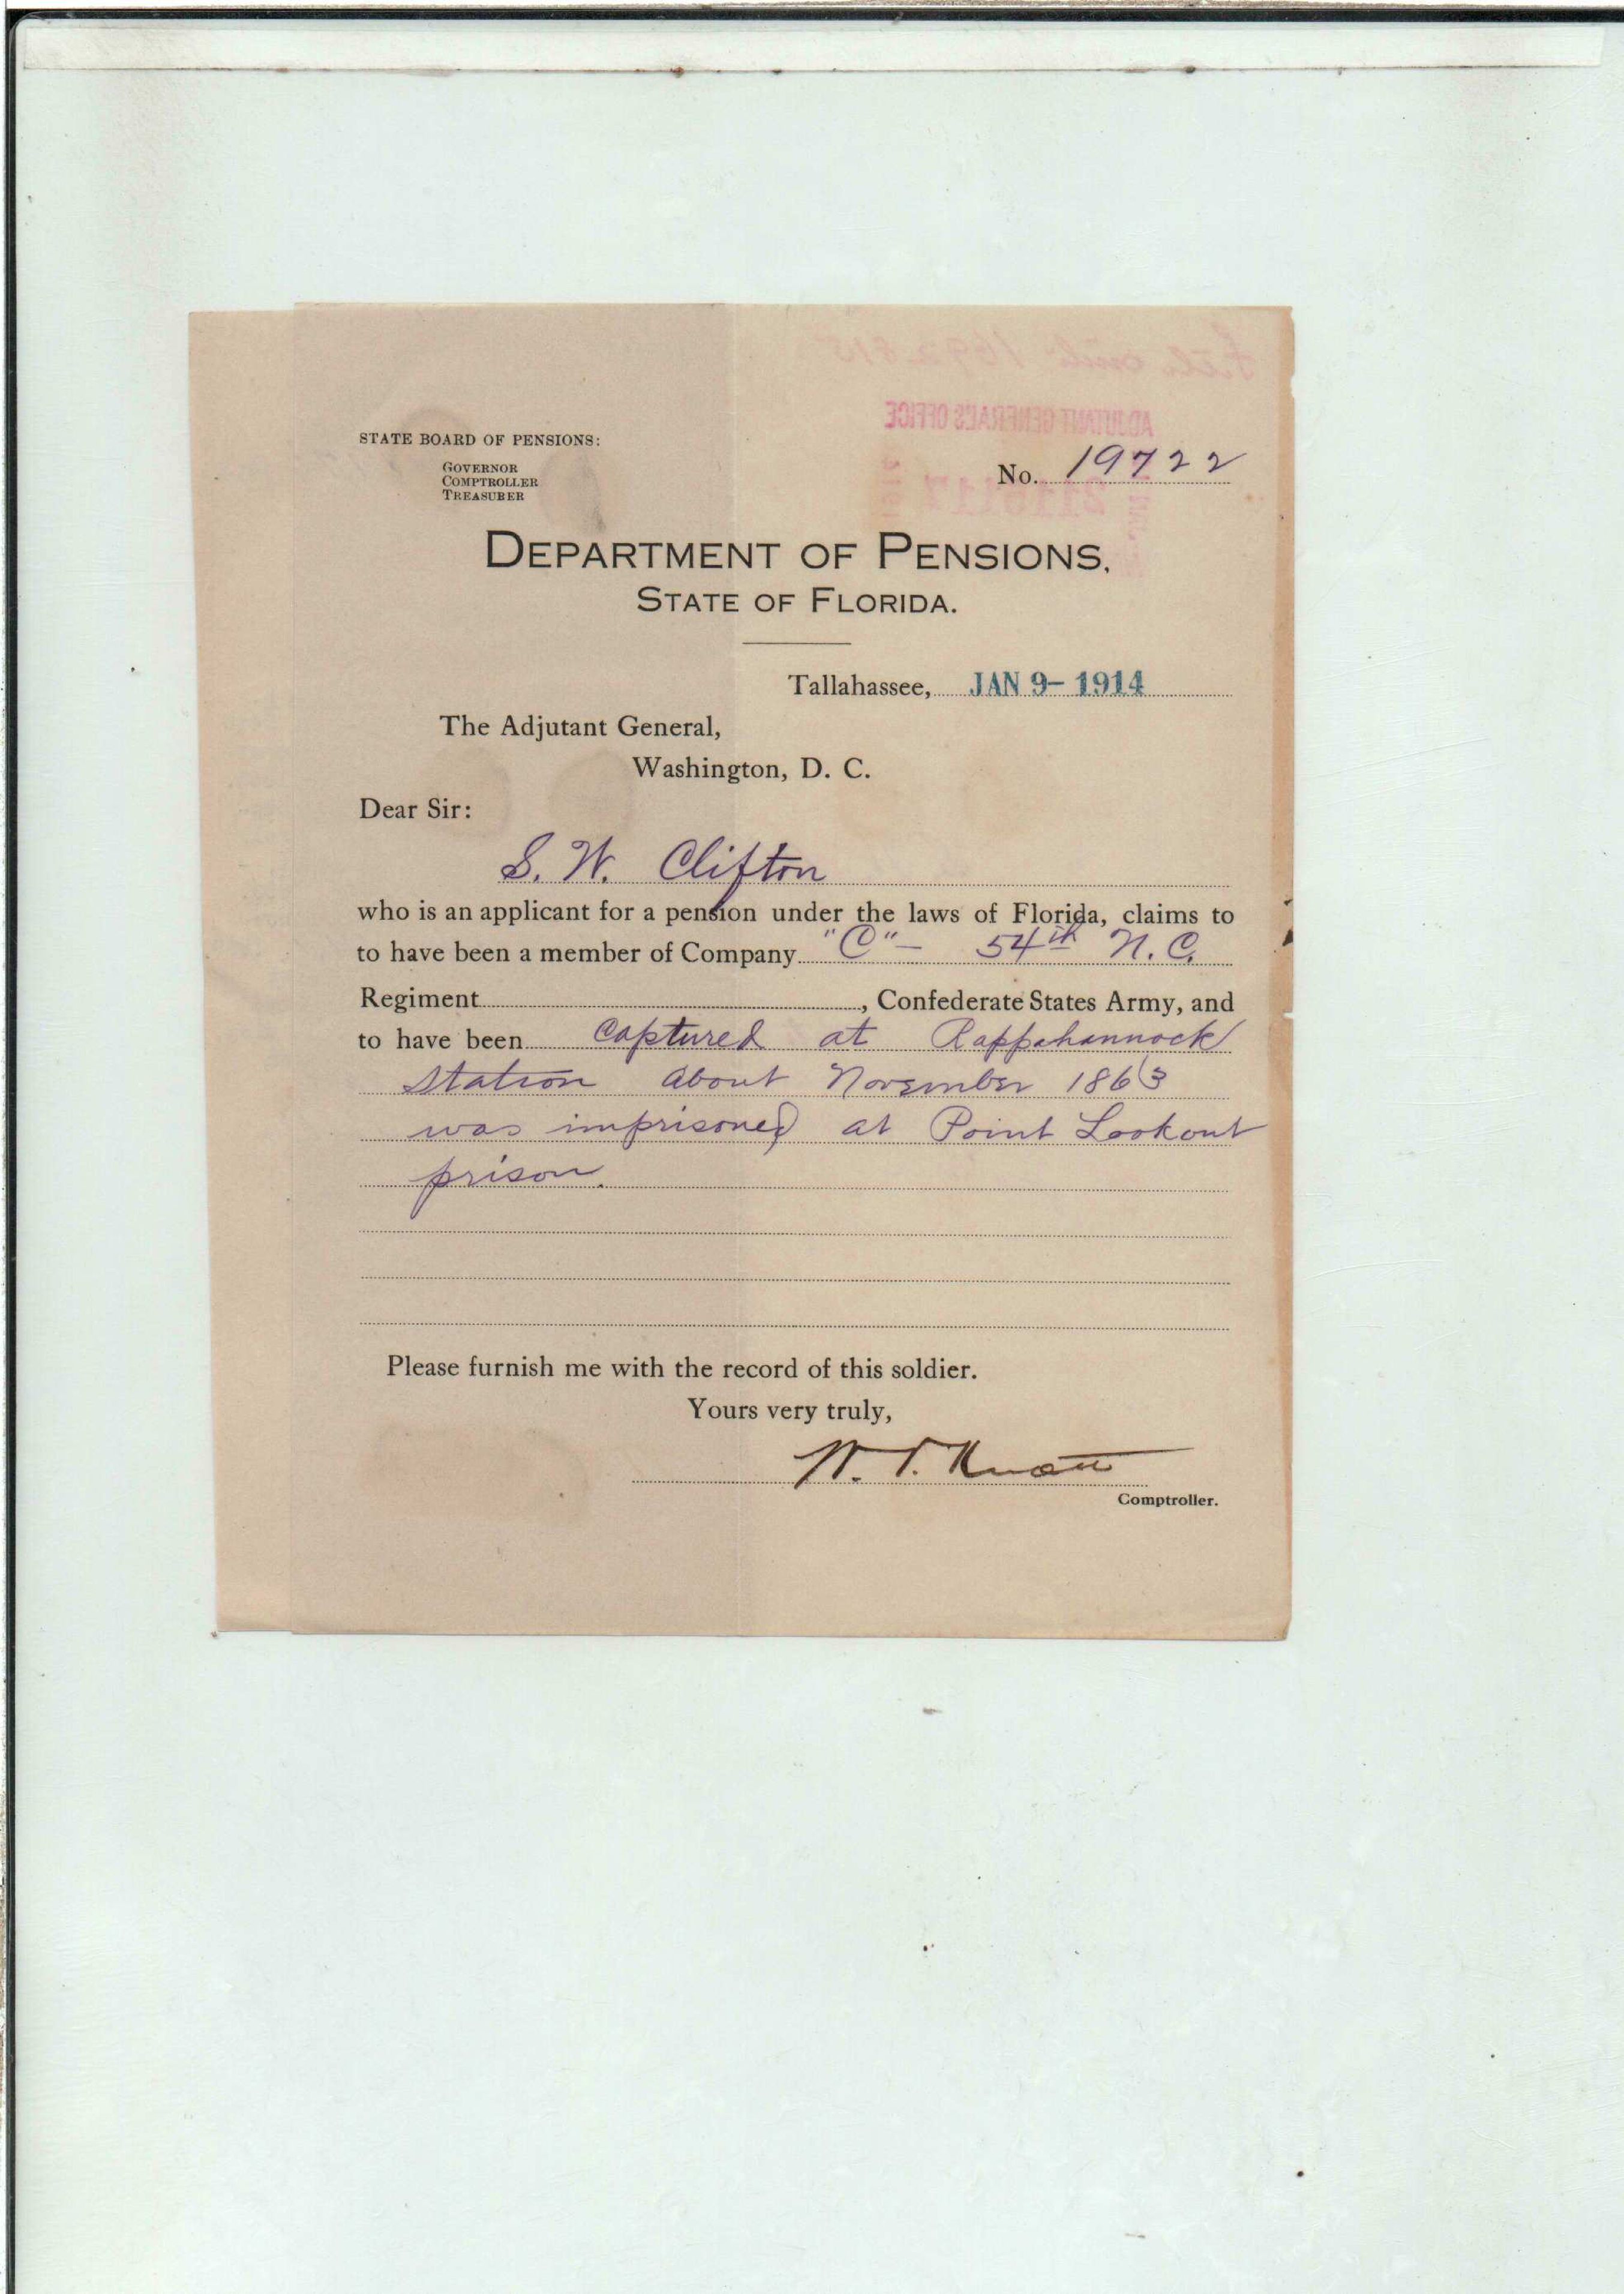 STATE BOARD OF PENSIONS:
GOVERNOR
COMPTROLLER
TREASURER
ADJUTANT GENERAL'S OFFICE
No. 19722
DEPARTMENT OF PENSIONS,
STATE OF FLORIDA.
Tallahassee, JAN 9- 1914
The Adjutant General,
Washington, D. C.
Dear Sir:
S. W. Clifton
who is an applicant for a pension under the laws of Florida, claims to
to have been a member of Company "C"- 54th N. C.
Regiment, Confederate States Army, and
to have been captured at Rappahannock
station about November 1863
was imprisoned at Point Lookout
prison.
Please furnish me with the record of this soldier.
Yours very truly,
W. V. Knott
Comptroller.